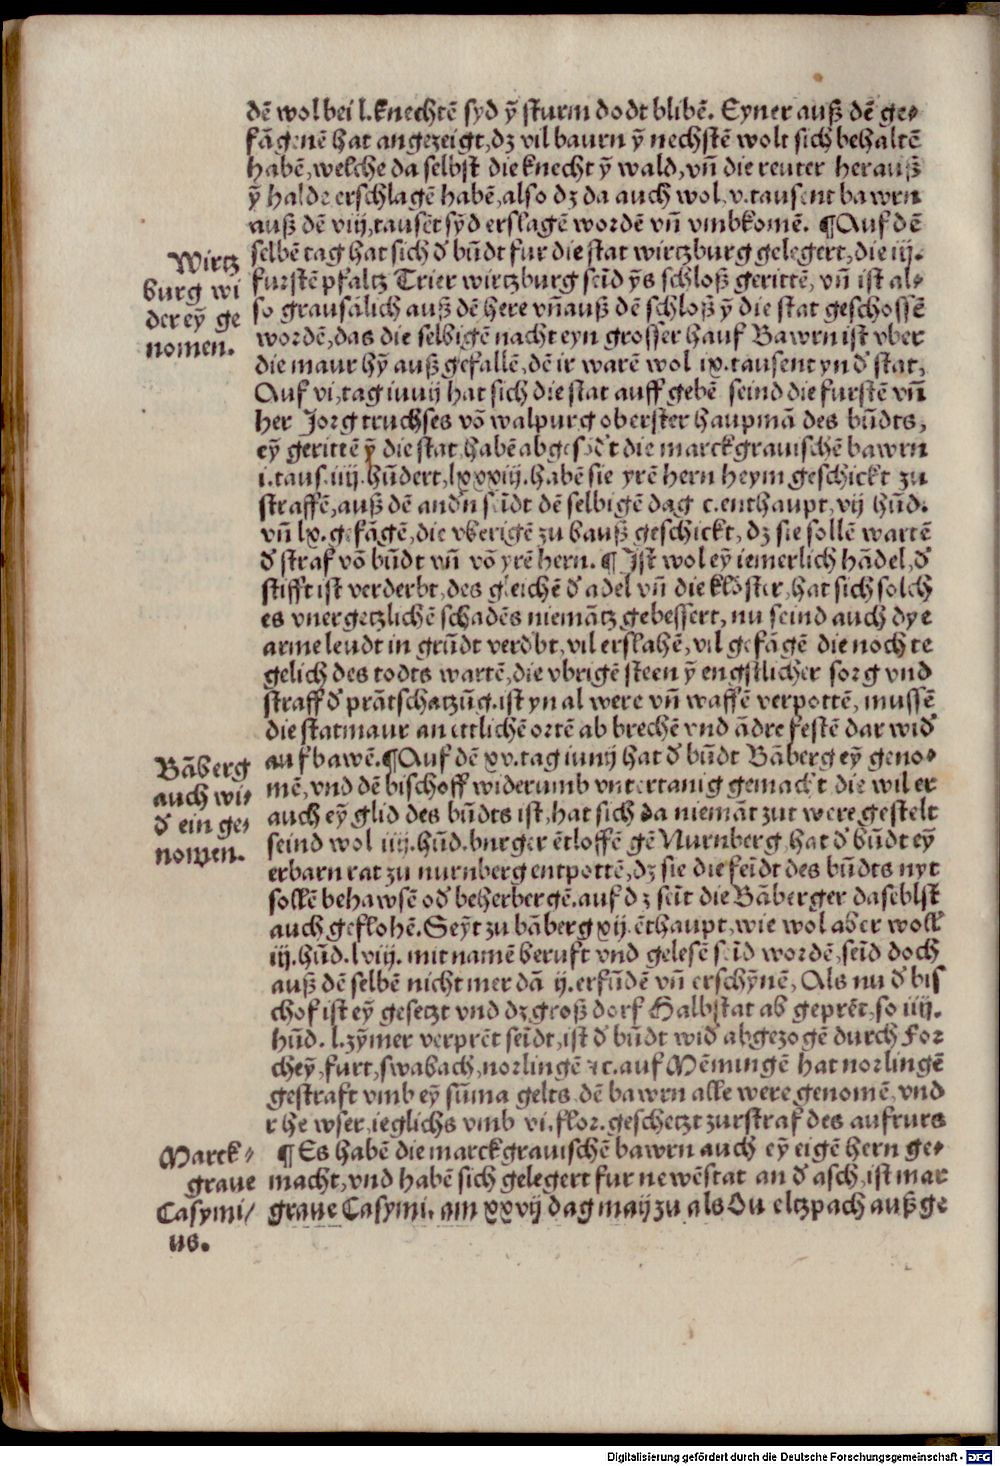 dē wol bei l.knechtē syd ȳ sturm dodt blibē. Eyner auß dē ge⸗
fāgenē hat angezeigt,dz vil baurn ȳ nechstē wolt sich behaltē
habē,welche da selbst die knecht ȳ wald,vn̄ die reuter herauß
ȳ halde erschlagē habē,also dz da auch wol,v.tausent bawrn
auß dē viij,tausēt sȳd erslagē wordē vn̄ vmbkomē. ¶Auf dē
selbē tag hat sich đ būdt fur die stat wirtzburg gelegert,die iij.
furstē pfaltz Trier wirtzburg seīd ȳs schloß gerittē, vn̄ ist al⸗
so grausālich auß dē here vn̄auß dē schloß ȳ die stat geschossē
wordē,das die selbigē nacht eyn grosser hauf Bawrn ist vber
die maur hȳ auß gefallē,dē ir warē wol ix.tausent yn đ stat,
Auf vi,tag iunij hat sich die stat auff gebē seind die furstē vn̄
her Jorg truchses vō walpurg oberster haupmā des būdts,
eȳ gerittē ȳ die stat,habē abgesōđt die marckgrauischē bawrn
i.taus.iiij.hūdert,lxxxiij.habē sie yrē hern heym geschickt zu
straffē,auß dē anđn seīdt dē selbigē dag c.enthaupt,vij hūd.
vn̄ lx.gefāgē,die vberigē zu hauß geschickt, dz sie sollē wartē
đ straf vō būdt vn̄ vō yrē hern. ¶ Jst wol eȳ iemerlich hādel,đ
stifft ist verderbt,des gleichē đ adel vn̄ die klöster,hat sich solch
es vnergetzlichē schadēs niemātz gebessert, nu seind auch dye
arme leudt in grūdt verđbt,vil erslahē,vil gefāgē die noch te
gelich des todts wartē,die vbrigē steen ȳ engstlicher sorg vnd
straff đ prātschatzūg.ist yn al were vn̄ waffē verpottē, mussē
die statmaur an ettlichē ortē ab brechē vnd ādre festē dar wiđ
auf bawē.¶Auf dē xv.tag iunij hat đ būdt Bāberg eȳ geno⸗
mē,vnd dē bischoff widerumb vntertanig gemacht die wil er
auch eȳ glid des būdts ist,hat sich da niemāt zur were gestelt
seind wol iiij.hūd.burger ētloffē gē Nurnberg,hat đ būdt eȳ
erbarn rat zu nurnberg entpottē,dz sie die feīdt des būdts nyt
sollē behawsē ođ beherbergē.auf dz seīt die Bāberger daseblst
auch geflohē.Seȳt zu bāberg xij.ēthaupt,wie wol aber woll
iij.hūd.lviij. mit namē beruft vnd gelesē seīd wordē,seīd doch
auß dē selbē nicht mer dā ij.erfūdē vn̄ erschȳnē, Als nu đ bis
chof ist eȳ gesetzt vnd dz groß dorf Halbstat ab geprēt,so iiij.
hūd. l.zȳmer verprēt seīdt,ist đ būdt wiđ abgezogē durch For
cheȳ,furt,swabach,norlingē ꝛc.auf Mēmingē hat norlingē
gestraft vmb eȳ sūma gelts dē bawrn alle were genomē,vnd
r he wser,ieglichs vmb vi.flor.geschetzt zur straf des aufrurs
¶ Es habē die marckgrauischē bawrn auch eȳ eigē hern ge⸗
macht,vnd habē sich gelegert fur newēstat an đ asch,ist mar
graue Casymi. am xxvij dag maij zu als Du eltzpach auß ge
Wirtz
burg wi
der eȳ ge
nomen.
Bāberg
auch wi⸗
đ ein ge⸗
nomen.
Marck⸗
graue
Casymi/
us.
Digitalisierung gefördert durch die Deutsche Forschungsgemeinschaft - DFG